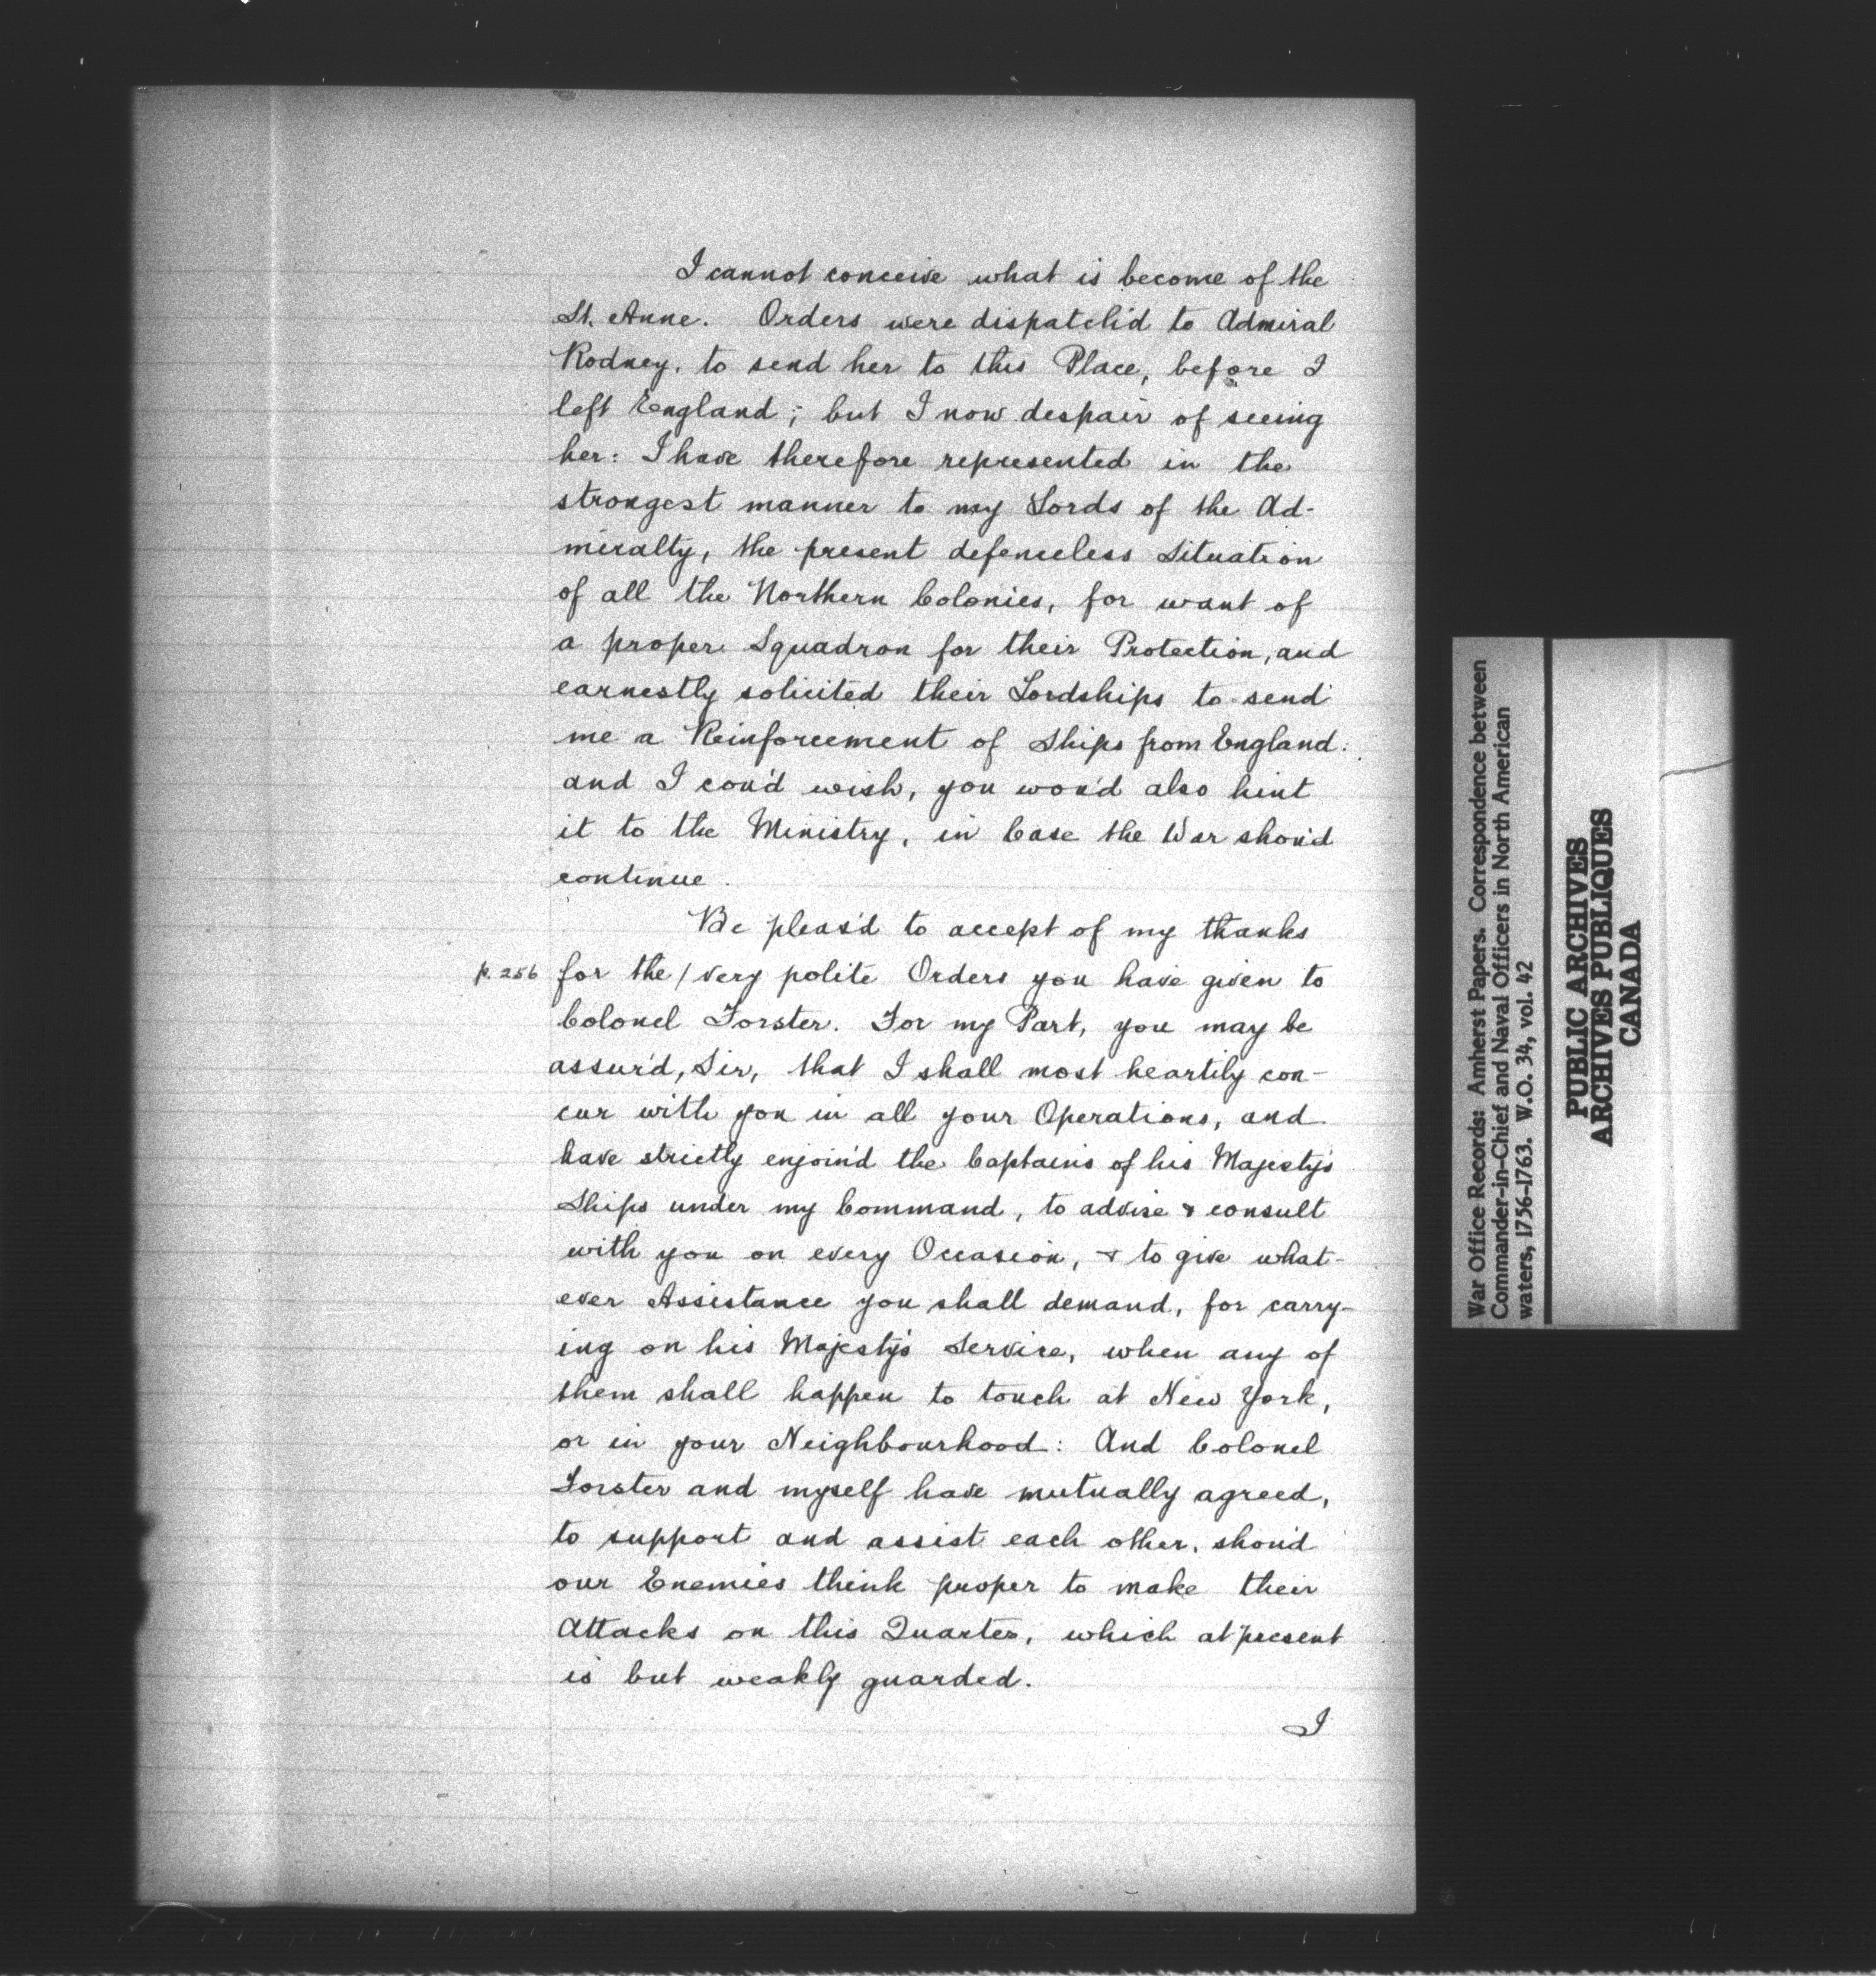 I cannot conceive what is become of the
St. Anne. Orders were dispatch'd to Admiral
Rodney, to send her to this Place, before I
left England; but I now despair of seeing
her: I have therefore represented in the
strongest manner to my Lords of the Ad-
miralty, the present defenceless Situation
of all the Northern Colonies, for want of
a proper Squadron for their Protection, and
earnestly solicited their Lordships to send
me a Reinforcement of Ships from England:
and I cou'd wish, you wou'd also hint
it to the Ministry, in Case the War shou'd
continue.
Be pleas'd to accept of my thanks
p. 256 for the / very polite Orders you have given to
Colonel Forster. For my Part, you may be
assur'd, Sir, that I shall most heartily con-
cur with you in all your Operations, and
have strictly enjoin'd the Captains of his Majesty's
Ships under my Command, to advise & consult
with you on every Occasion, & to give what-
ever Assistance you shall demand, for carry-
ing on his Majesty's Service, when any of
them shall happen to touch at New York,
or in your Neighbourhood: And Colonel
Forster and myself have mutually agreed,
to support and assist each other, shou'd
our Enemies think proper to make their
Attacks on this Quarter, which at present
is but weakly guarded.
I
War Office Records: Amherst Papers. Correspondence between
Commander-in-Chief and Naval Officers in North American
waters, 1756-1763. W.O. 34, vol. 42
PUBLIC ARCHIVES
ARCHIVES PUBLIQUES
CANADA